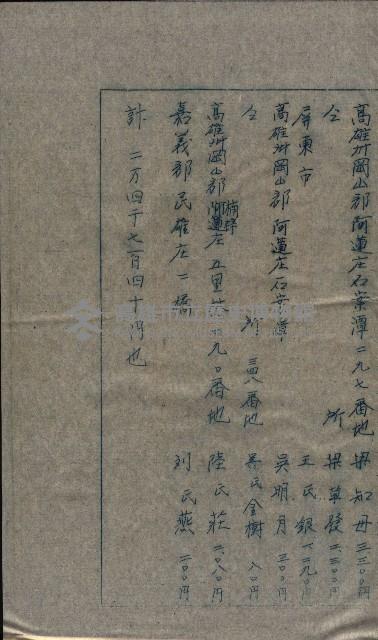 高雄州岡山郡阿蓮庄石案潭二九七番地 梁知母 三三〇〇円
仝 所 梁草發 二三〇〇円
屏東市 王氏銀
高雄州岡山郡阿蓮庄石案潭 吳明月 三〇〇円
仝 所 三四八番地 吳氏金樹 八〇円
高雄州岡山郡楠梓庄五里林九〇番地 陸氏莊 二〇八〇円
嘉義郡民雄庄二橋 刘氏燕 二〇〇円
計 二万四千七百四十円也